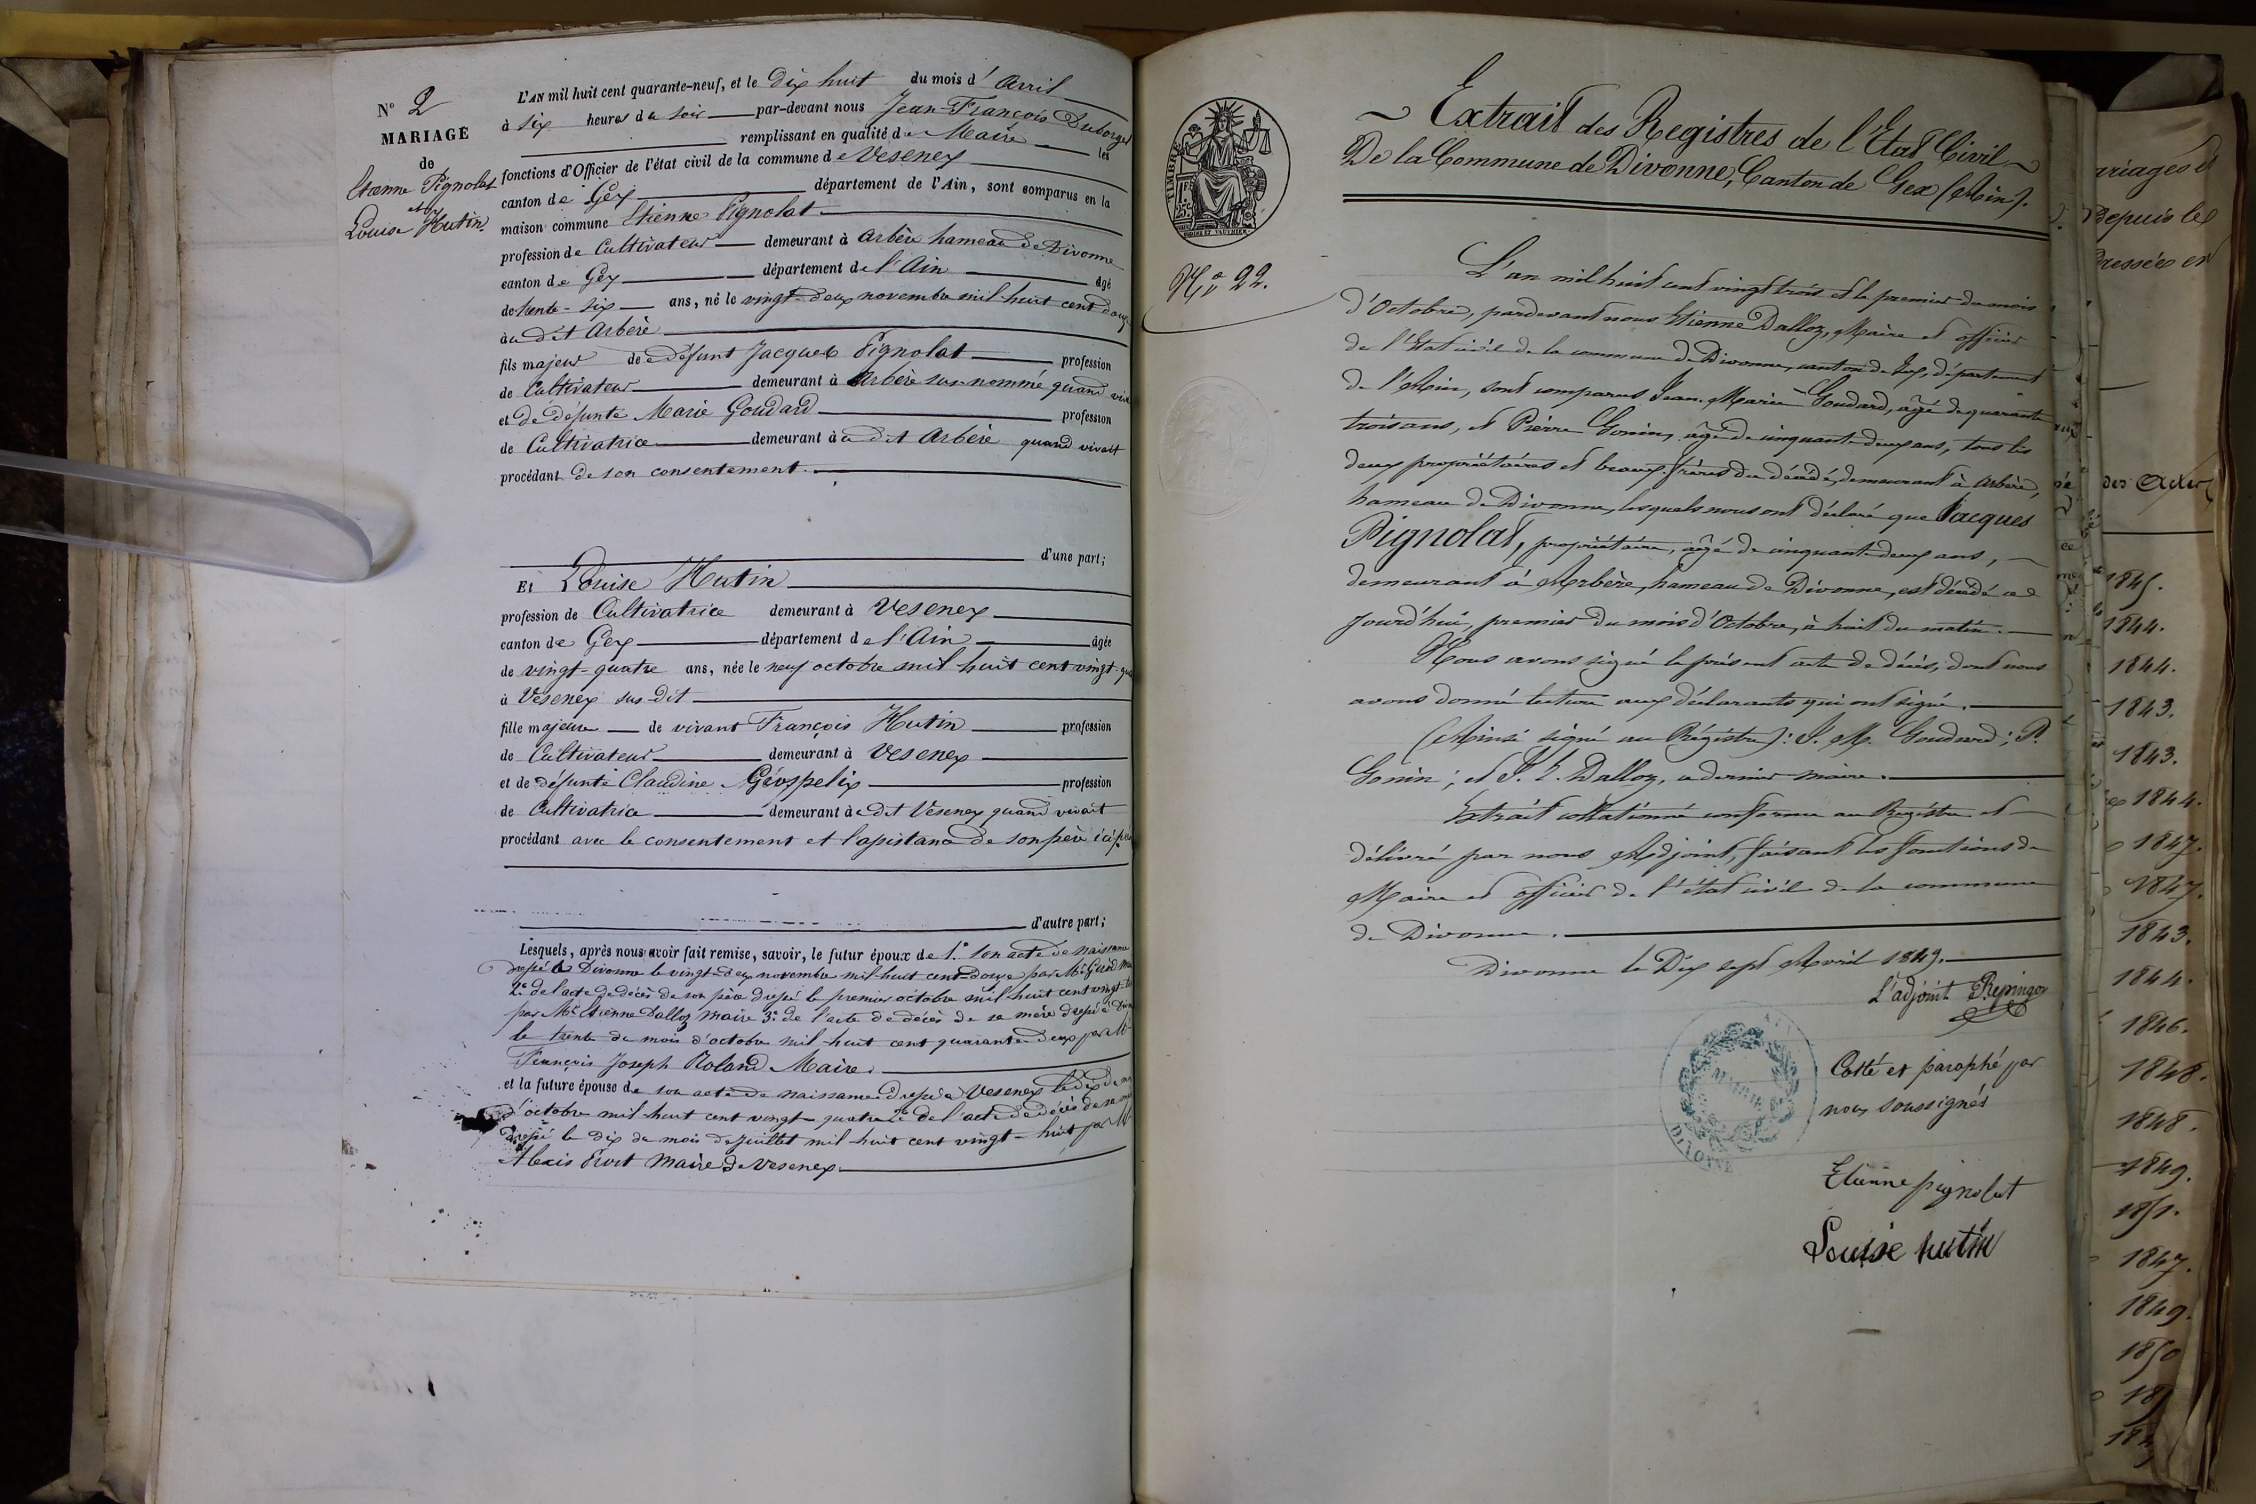 N° 2
MARIAGE
de
Etienne Pignolat
et de
Louise Hutin.
L'AN mil huit cent quarante-neuf, et le dix huit du mois d'Avril
à six heures du soir par-devant nous Jean-François Duborgel
remplissant en qualité de Maire les
fonctions d'Officier de l'état civil de la commune de Vesenex
canton de Gex département de l'Ain, sont comparus en la
maison commune Etienne Pignolat
profession de Cultivateur demeurant à Arbère hameau de Divonne
canton de Gex département de l'Ain âgé
de trente-six ans, né le vingt-deux novembre mil huit cent douze
à dit Arbère
fils majeur de défunt Jacques Pignolat profession
de Cultivateur demeurant à Arbère sus-nommé quand vivait
et de défunte Marie Goudard profession
de Cultivatrice demeurant à dit Arbère quand vivait
procédant de son consentement.
d'une part;
Et Louise Hutin
profession de Cultivatrice demeurant à Vesenex
canton de Gex département de l'Ain âgée
de vingt-quatre ans, née le neuf octobre mil huit cent vingt-
à Vesenex sus-dit
fille majeure de vivant François Hutin profession
de Cultivateur demeurant à Vesenex
et de défunte Claudine profession
de Cultivatrice demeurant à dit Vesenex quand vivait
procédant avec le consentement et l'assistance de son père ici
d'autre part;
Lesquels, après nous avoir fait remise, savoir, le futur époux de 1.° son acte de naissance
dressé à Divonne le vingt-deux novembre mil-huit cent-douze par Mr Girod
2.° de l'acte de décès de son père dressé le premier octobre mil huit cent vingt-
par Mr Etienne Dalloz Maire 3.° de l'acte de décès de sa mère dressé à
le trente du mois d'octobre mil huit cent quarante-deux par Mr
François Joseph Roland Maire.
et la future épouse de son acte de naissance dressé à Vesenex le dix du
d'octobre mil huit cent vingt-quatre 2.° de l'acte de décès de sa
dressé le dix du mois de Juillet mil huit cent vingt-huit par Mr
Alexis Maire de Vesenex
TIMBRE
1 F.
25 c.
N.° 22.
Extrait des Registres de l'Etat Civil
De la Commune de Divonne, Canton de Gex (Ain).
L'an mil huit cent vingt trois et le premier du mois
d'Octobre, pardevant nous Etienne Dalloz, Maire et officier
de l'Etat civil de la commune de Divonne, canton de Gex, département
de l'Ain, sont comparus Jean-Marie Goudard, âgé de quarante
trois ans, et Pierre Gonin, âgé de cinquante deux ans, tous les
deux propriétaires et beaux-frères du décédé, demeurant à Arbère,
hameau de Divonne, lesquels nous ont déclaré que Jacques
Pignolat, propriétaire, âgé de cinquante deux ans,
demeurant à Arbère, hameau de Divonne, est décédé ce
jourd'hui, premier du mois d'Octobre, à huit du matin.
Nous avons signé le présent acte de décès, dont nous
avons donné lecture aux déclarants qui ont signé.
(Ainsi signé au Régistre): J. M. Goudard; P.
Gonin; et J. E. Dalloz, ce dernier maire.
Extrait collationné conforme au Régistre et
délivré par nous Adjoint, faisant les fonctions de
Maire et officier de l'état civil de la commune
de Divonne.
Divonne le Dix sept Avril 1849.
L'adjoint
MAIRIE DE
DIVONNE
AIN
Cotté et paraphé par
nous soussignés
Etienne pignolat
Louise hutin
Depuis les
des Actes
1845.
1844.
1844.
1843.
1843.
1844.
1847.
1847.
1843.
1844.
1846.
1848.
1848.
1849.
1851.
1847.
1849.
1850